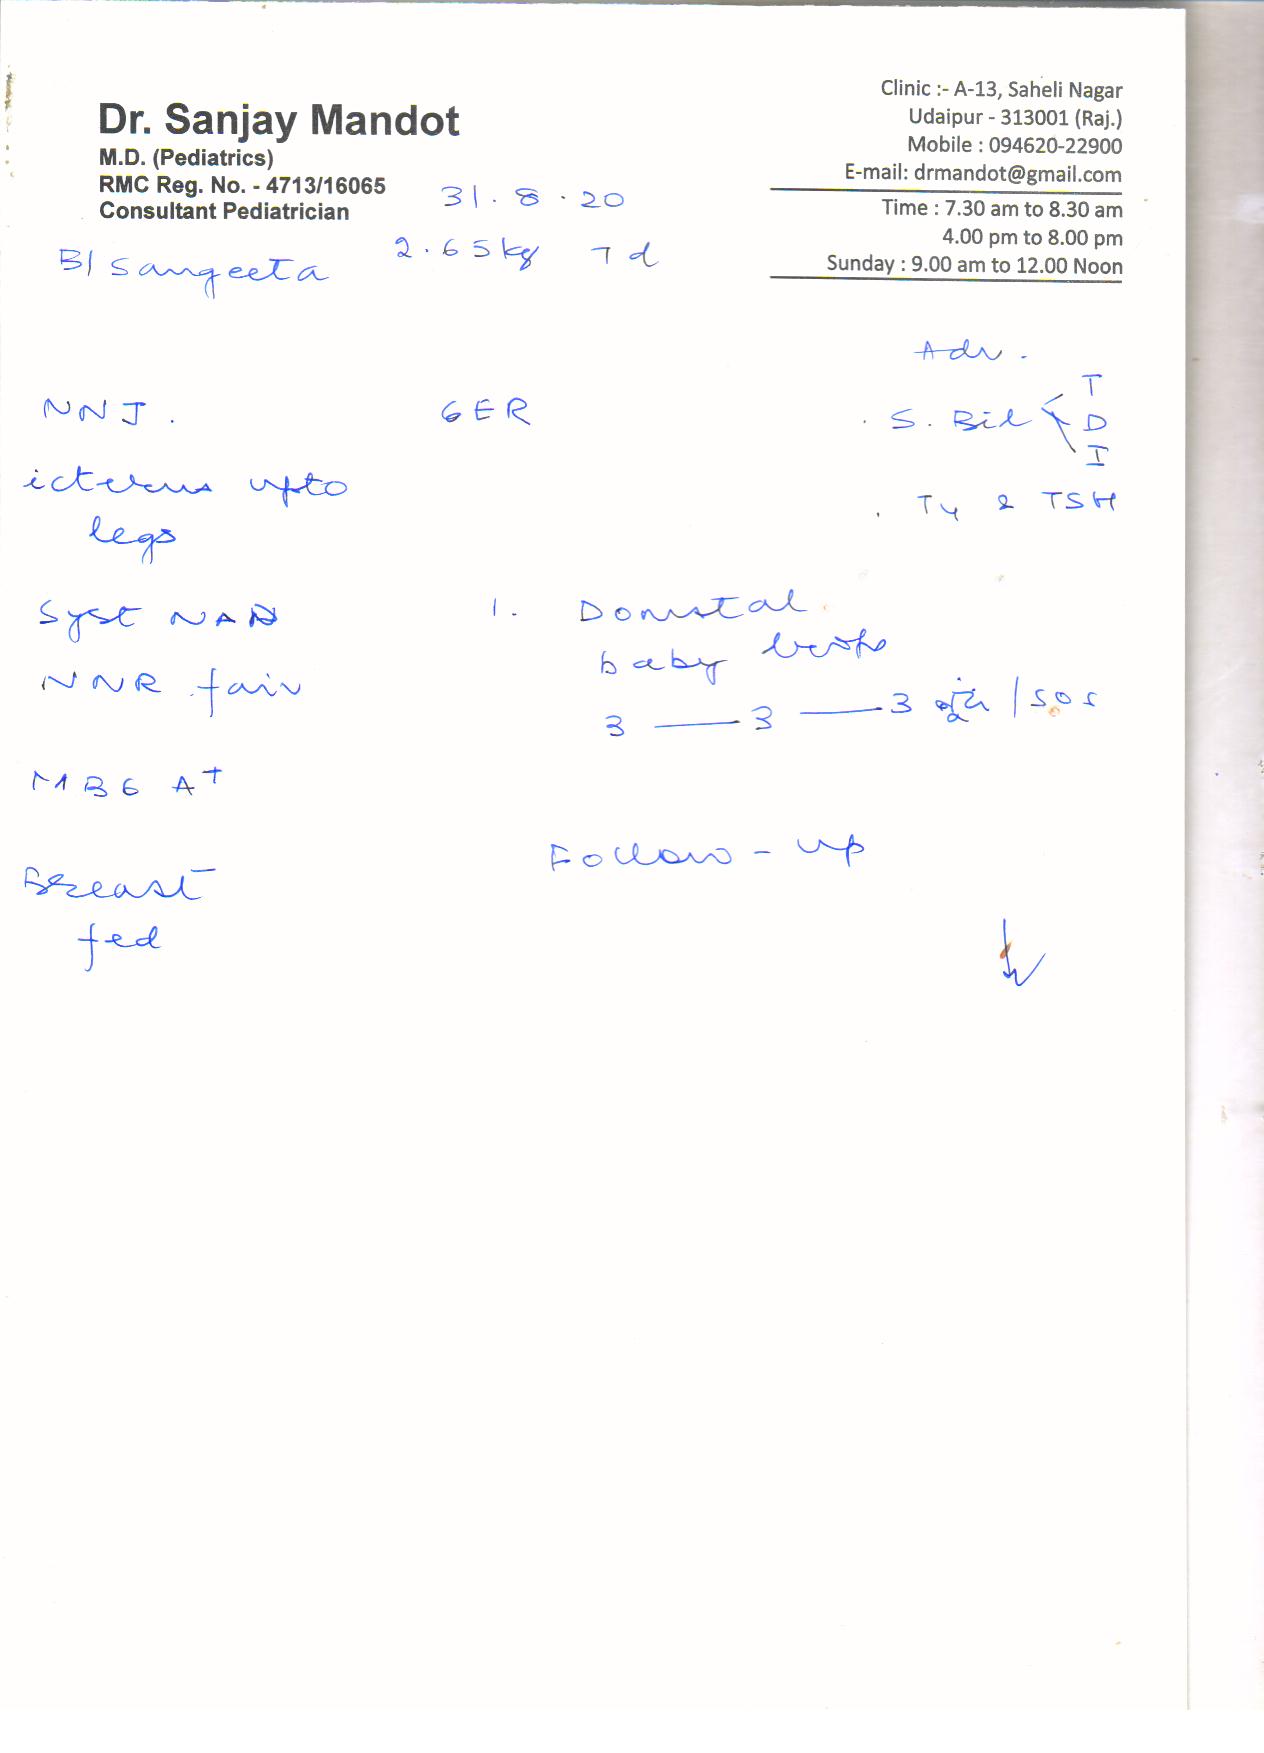 Dr. Sanjay Mandot
M.D. (Pediatrics)
RMC Reg. No. - 4713/16065
Consultant Pediatrician
Clinic :- A-13, Saheli Nagar
Udaipur - 313001 (Raj.)
Mobile : 094620-22900
E-mail: drmandot@gmail.com
Time : 7.30 am to 8.30 am
4.00 pm to 8.00 pm
Sunday : 9.00 am to 12.00 Noon
31.8.20
B/ Sangeeta 2.65kg 7d
Adv.
NNJ. GER
. S. Bil T
D
I
icterus upto
legs
. T4 & TSH
Syst NAD
NNR fair
1. Domstal
baby
3 — 3 — 3 /SOS
MBG A+
Breast
fed
Follow-up